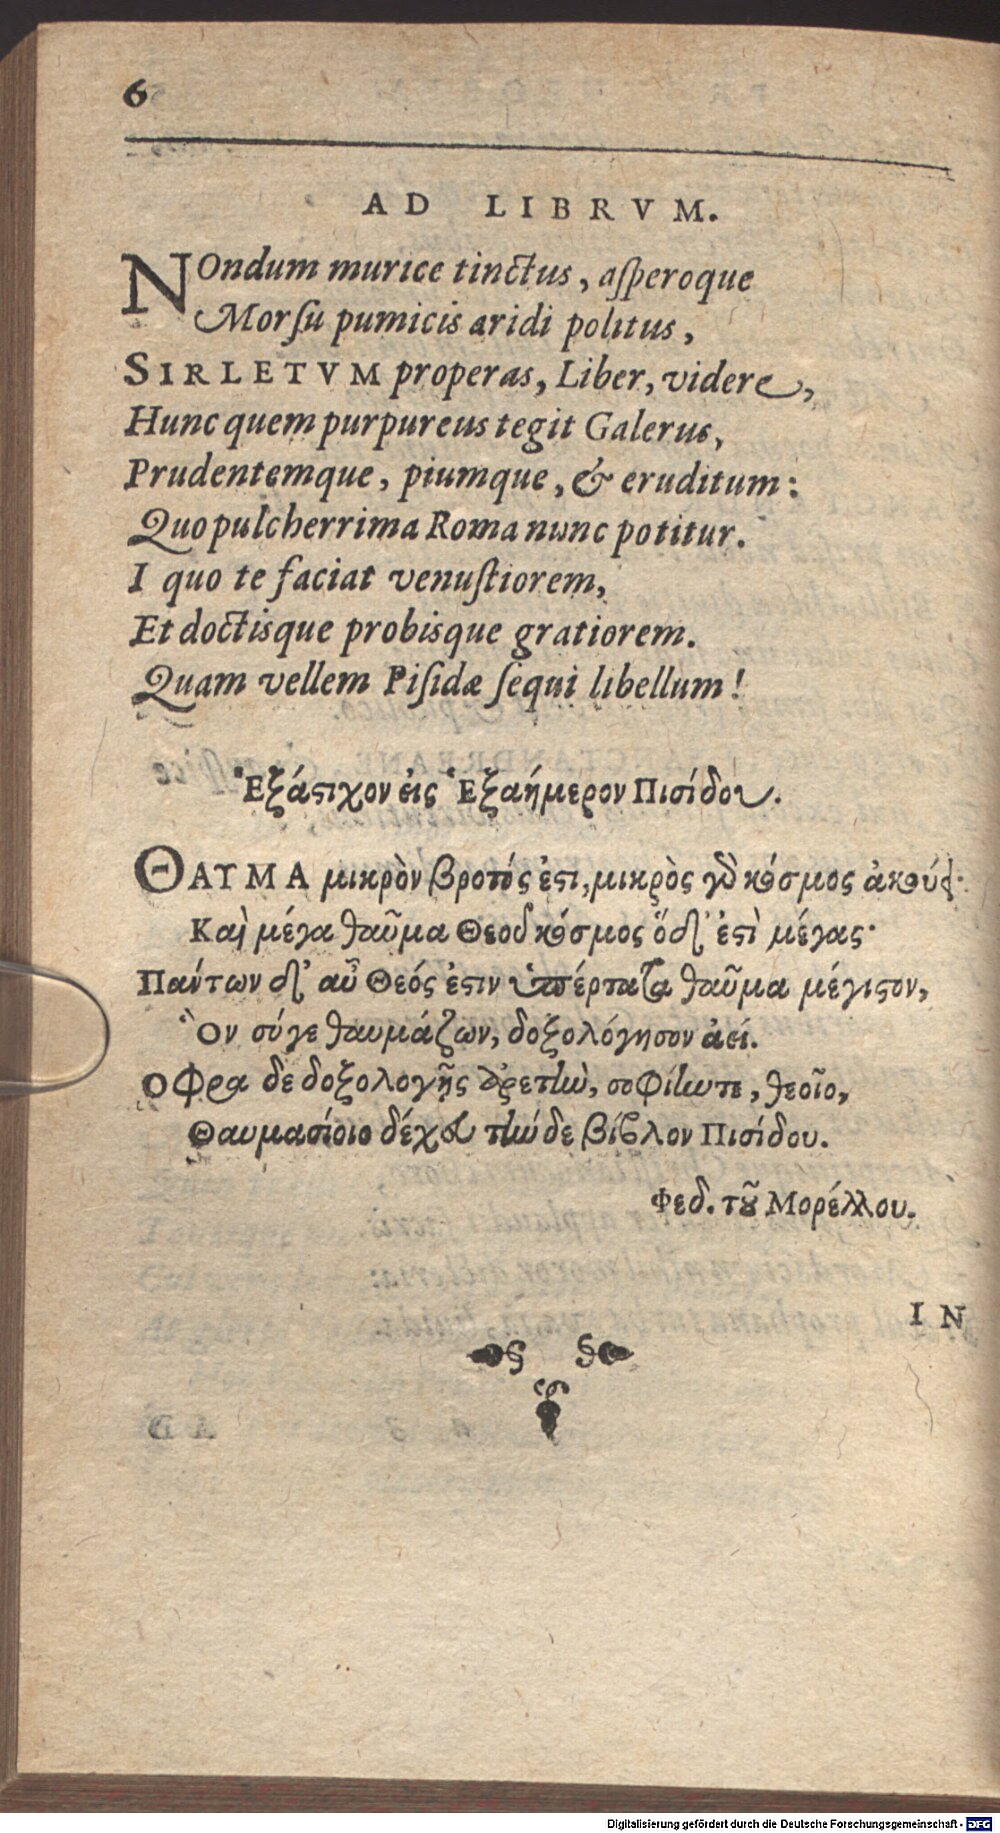 6
AD LIBRVM.
NOndum murice tinctus, aſperoque
Morſu pumicis aridi politus,
SIRLETVM properas, Liber, videre,
Hunc quem purpureus tegit Galerus,
Prudentemque, piumque, & eruditum:
Quo pulcherrima Roma nunc potitur.
I quo te faciat venuſtiorem,
Et doctisque probisque gratiorem.
Quam vellem Piſidæ ſequi libellum!
Ἑξάστιχον εἰς Ἑξαήμερον Πισίδου.
ΘΑΥΜΑ μικρὸν βροτός ἐστι, μικρὸς γὸ κόσμος ἀκούει·
Καὶ μέγα θαῦμα Θεοῦ κόσμος ὅδ' ἐστὶ μέγας·
Πάντων δ' αὖ Θεός ἐστιν ὑπέρτατα θαῦμα μέγιστον,
Ὃν σύγε θαυμάζων, δοξολόγησον ἀεί.
ΟΦρα δε δοξολογῇς ἀρετὴν, σοφίην τε, θεοῖο,
Θαυμασίοιο δέχου τήν δε βίβλον Πισίδου.
Φεδ. τοῦ Μορέλλου.
IN
Digitalisierung gefördert durch die Deutsche Forschungsgemeinschaft - DFG